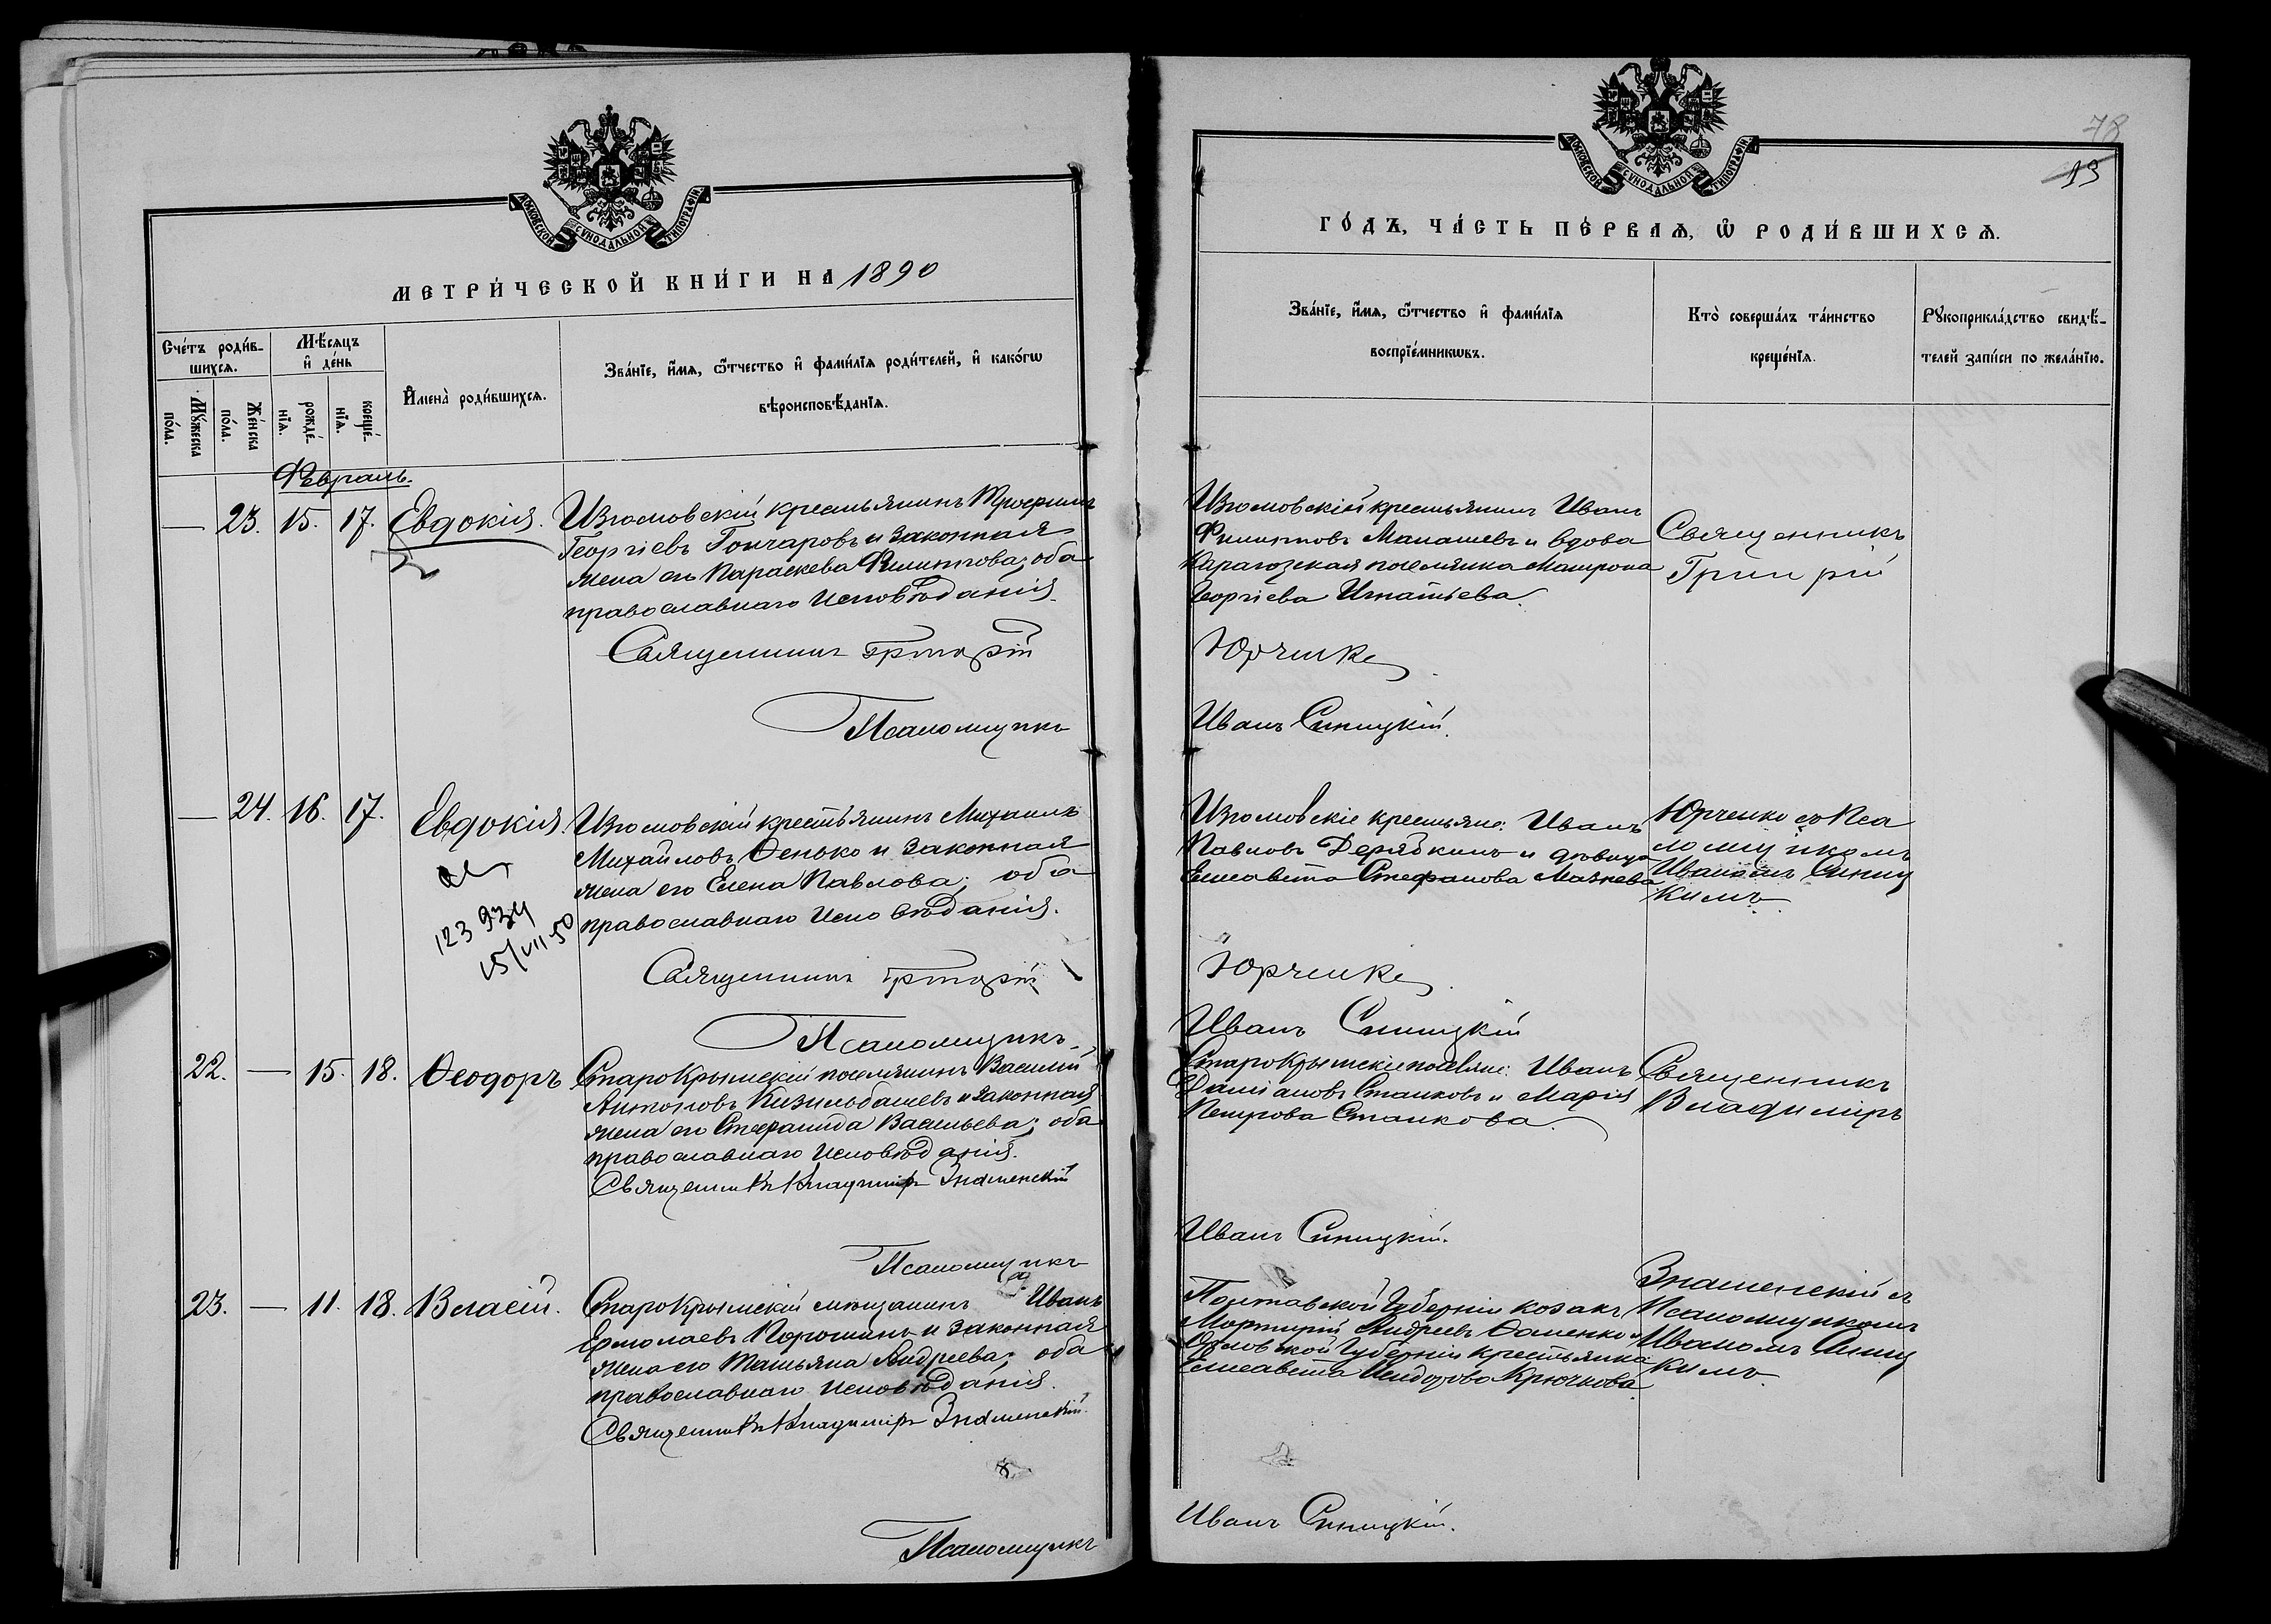 МОСКОВСКОЙ СѴНОДАЛЬНОЙ ТИПОГРАФІИ
МЕТРИ́ЧЕСКОЙ КНИ́ГИ НА 1890
Сче́тъ роди́в-
шихсѧ.
Мѣ́сѧцъ
и҆ де́нь
Мꙋ́жеска
по́ла.
Же́нска
по́ла.
рожде́-
нїѧ.
креще́-
нїѧ.
И҆мена̀ роди́вшихсѧ.
Зва́нїе, и҆́мѧ, ѻ҆́тчество и҆ фами́лїѧ роди́телей, и҆ како́гѡ
вѣроисповѣ́данїѧ.
Февраль.
— 23. 15. 17. Евдокія.
Изюмовскій крестьянинъ Трофимъ
Георгіевъ Гончаровъ и законная
жена его Параскева Филиппова; оба
православнаго исповѣданія.
Священникъ Григорій
Псаломщикъ
— 24. 16. 17. Евдокія
123 934
15/VII 50
Изюмовскій крестьянинъ Михаилъ
Михайловъ Ѳенько и законная
жена его Елена Павлова; оба
православнаго исповѣданія.
Священникъ Григорій
Псаломщикъ
22. — 15. 18. Ѳеодоръ
Старокрымскій поселянинъ Василій
Антоновъ Кизильбашевъ и законная
жена его Стефанида Васильева; оба
православнаго исповѣданія.
Священникъ Владиміръ Знаменскій
Псаломщикъ
23. — 11. 18. Власій.
Старокрымскій мѣщанинъ Иванъ
Ермолаевъ Порошинъ и законная
жена его Татьяна Андреева; оба
православнаго исповѣданія.
Священникъ Владиміръ Знаменскій.
Псаломщикъ
78
13
МОСКОВСКОЙ СѴНОДАЛЬНОЙ ТИПОГРАФІИ
ГО́ДЪ, ЧА́СТЬ ПЕ́РВАѦ, Ѡ҆ РОДИ́ВШИХСѦ.
Зва́нїе, и҆́мѧ, ѻ҆́тчество и҆ фами́лїѧ
воспрїе́мникѡвъ.
Кто̀ соверша́лъ та́инство
креще́нїѧ.
Рꙋкоприкла́дство свидѣ́-
телей за́писи по жела́нїю.
Изюмовскій крестьянинъ Иванъ
Филипповъ Манашевъ и вдова
Карагозская поселянка Матрона
Георгіева Игнатьева.
Священникъ
Григорій
Юрченко
Иванъ Синицкій.
Изюмовскіе крестьяне: Иванъ
Павловъ Дерябкинъ и дѣвица
Елисавета Стефанова Мазнева
Юрченко съ Пса
ломщикомъ
Иваномъ Синиц
кимъ.
Юрченко
Иванъ Синицкій
Старокрымскіе поселяне: Иванъ
Даміановъ Станковъ и Марія
Петрова Станкова.
Священникъ
Владиміръ
Иванъ Синицкій.
Полтавской Губерніи козакъ
Мартирій Андреевъ Ѳоменко и
Орловской Губерніи крестьянка
Елисавета Исидорова Крючкова.
Знаменскій съ
Псаломщикомъ
Иваномъ Синиц
кимъ.
Иванъ Синицкій.